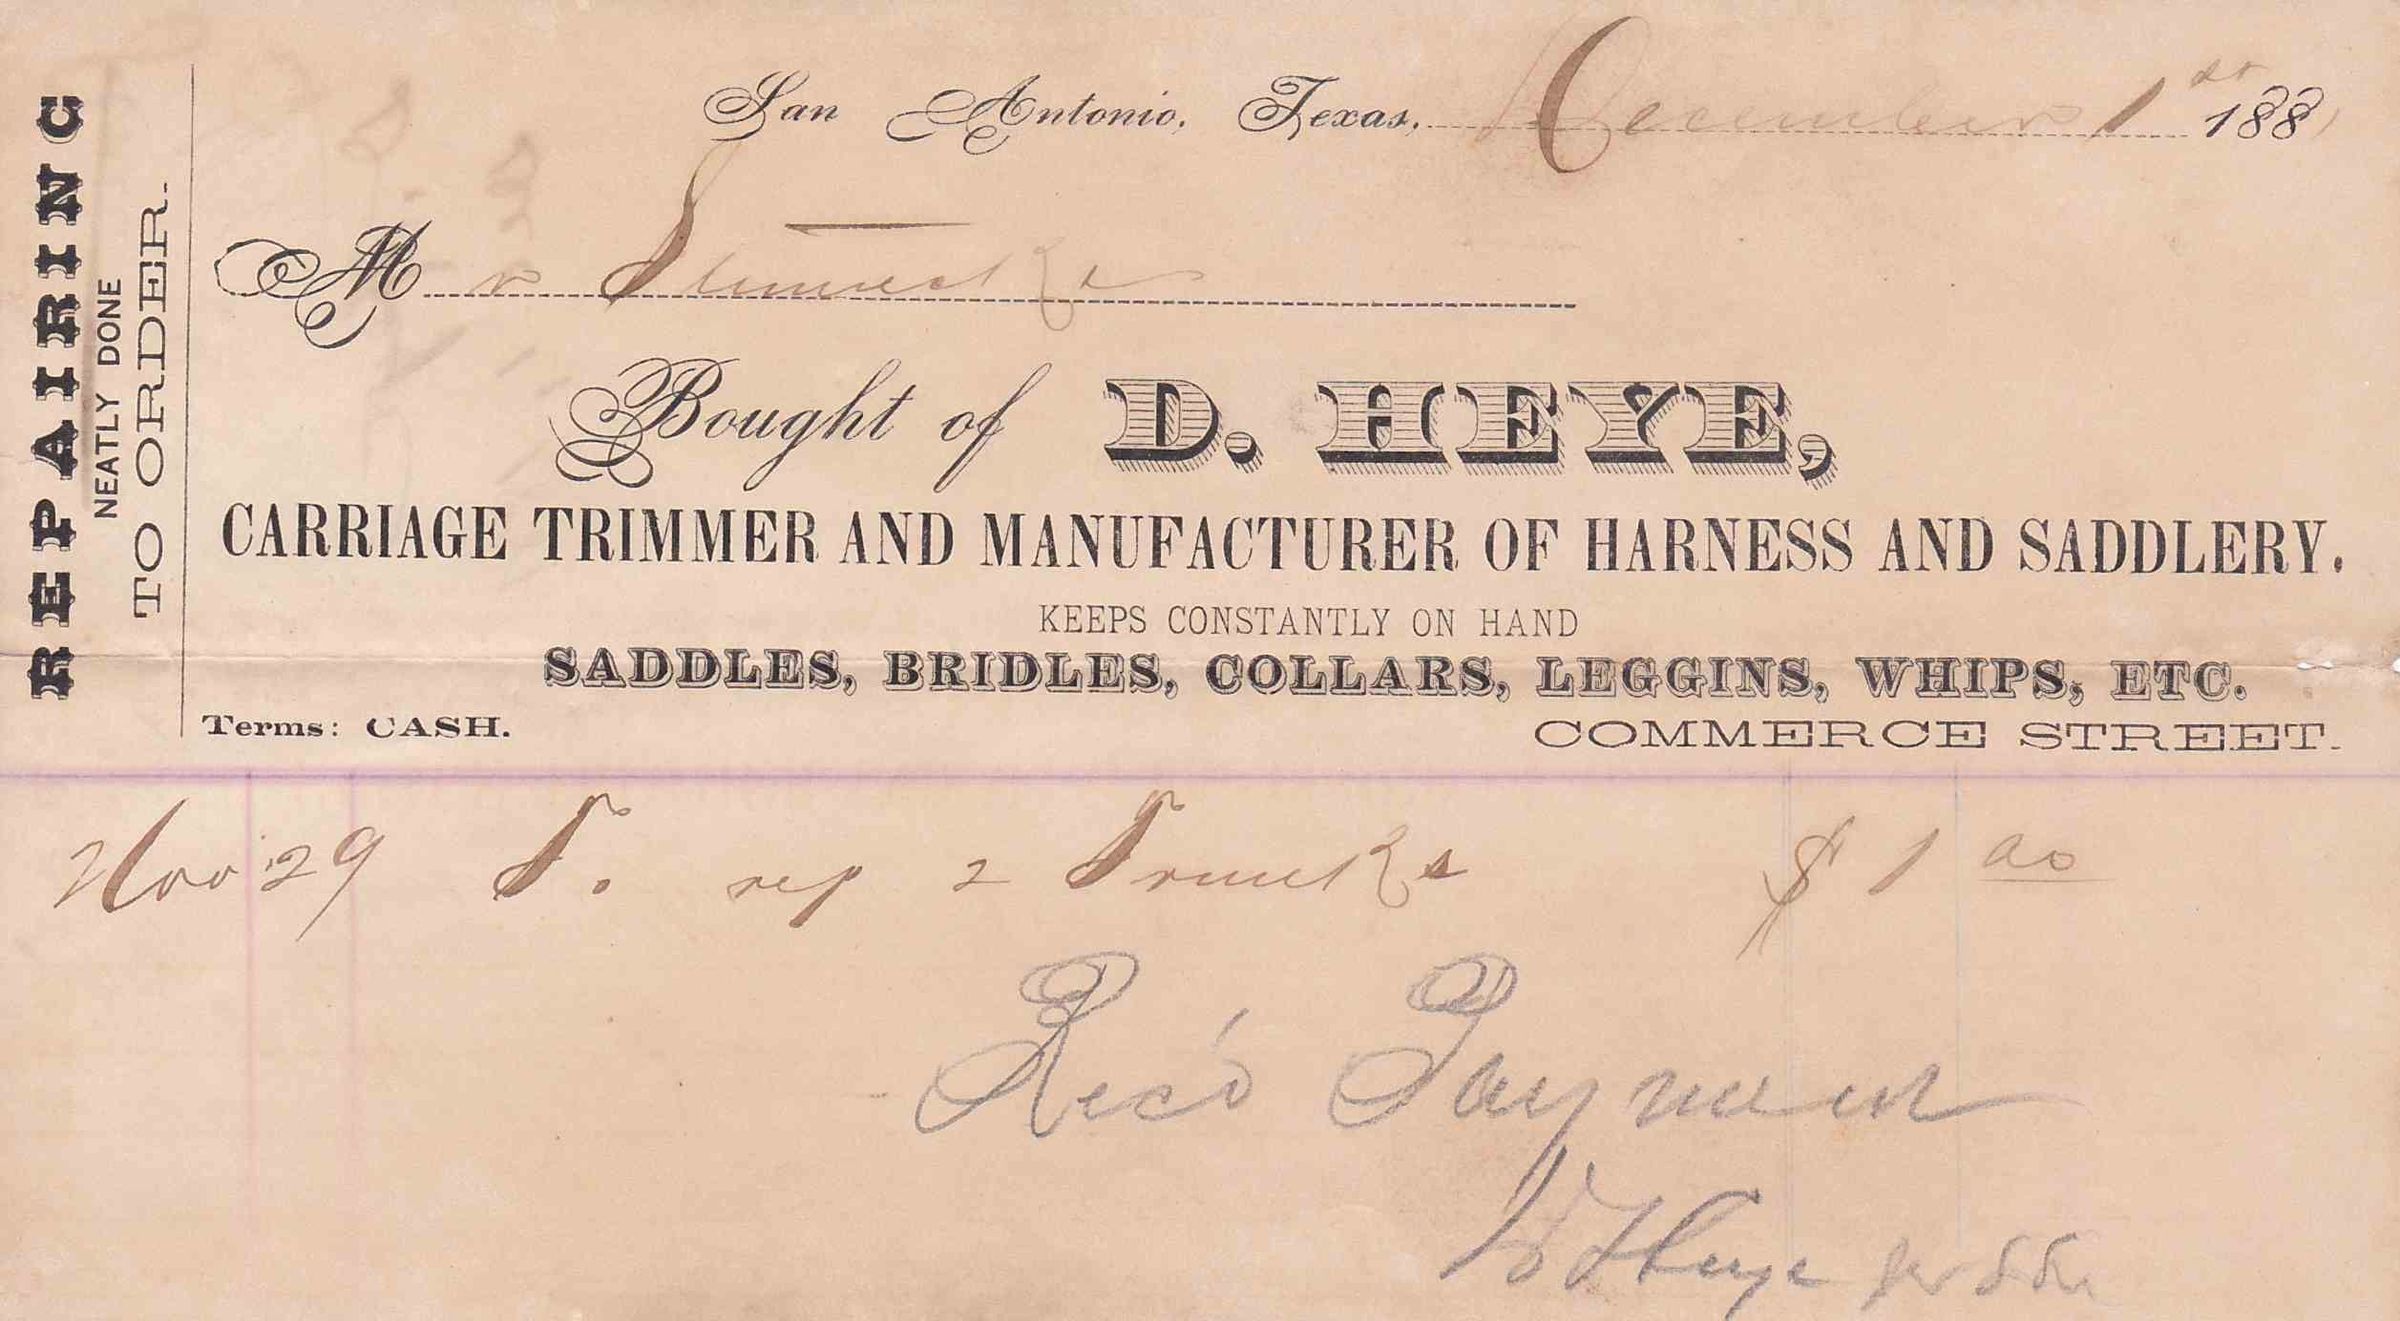 San Antonio, Texas, December 1st 1881
Mr
Bought of D. HEYE,
CARRIAGE TRIMMER AND MANUFACTURER OF HARNESS AND SADDLERY.
KEEPS CONSTANTLY ON HAND
SADDLES, BRIDLES, COLLARS, LEGGINS, WHIPS, ETC.
Terms: CASH.
COMMERCE STREET.
REPAIRING
NEATLY DONE
TO ORDER.
Nov 29 To rep 2 Trunks $1 00
Rec'd Payment
D Heye per